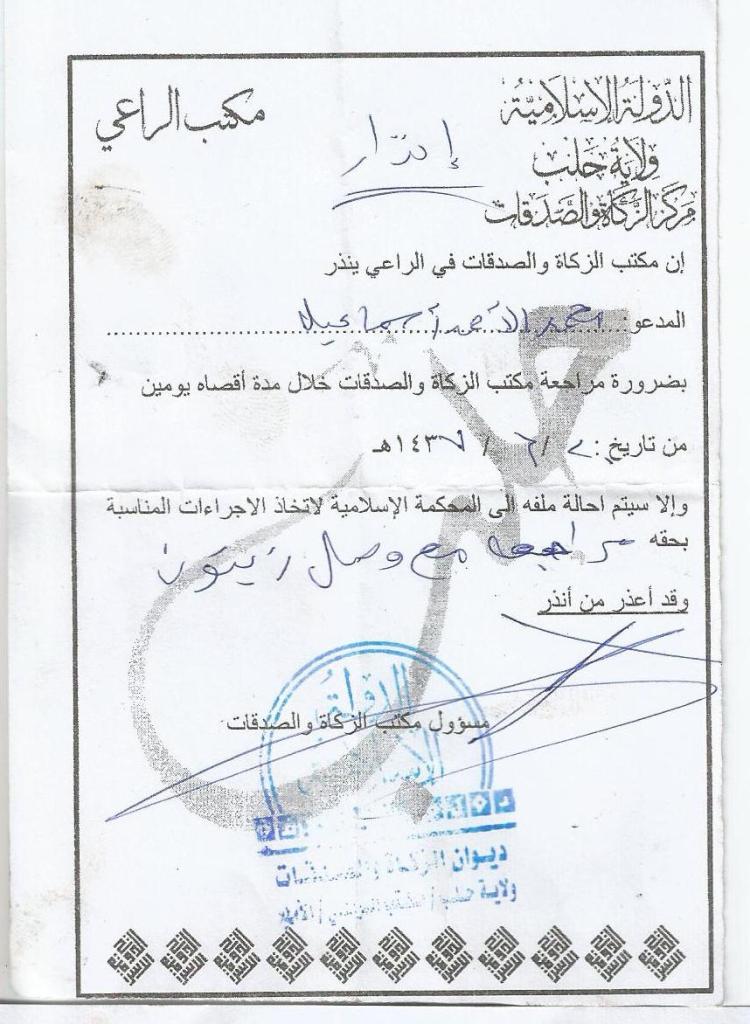 الدولة الإسلامية
مكتب الراعي
ولاية حلب
إنذار
مركز الزكاة والصدقات
إن مكتب الزكاة والصدقات في الراعي ينذر
المدعو: محمد الأحمد أسماعيل
بضرورة مراجعة مكتب الزكاة والصدقات خلال مدة أقصاه يومين
من تاريخ: / / ١٤٣٧هـ
وإلا سيتم احالة ملفه الى المحكمة الإسلامية لاتخاذ الاجراءات المناسبة
بحقه مراجعة مع وصل زيتون
وقد أعذر من أنذر
مسؤول مكتب الزكاة والصدقات
حلب
الدولة
الإسلامية
ديوان الزكاة والصدقات
ولاية حلب /